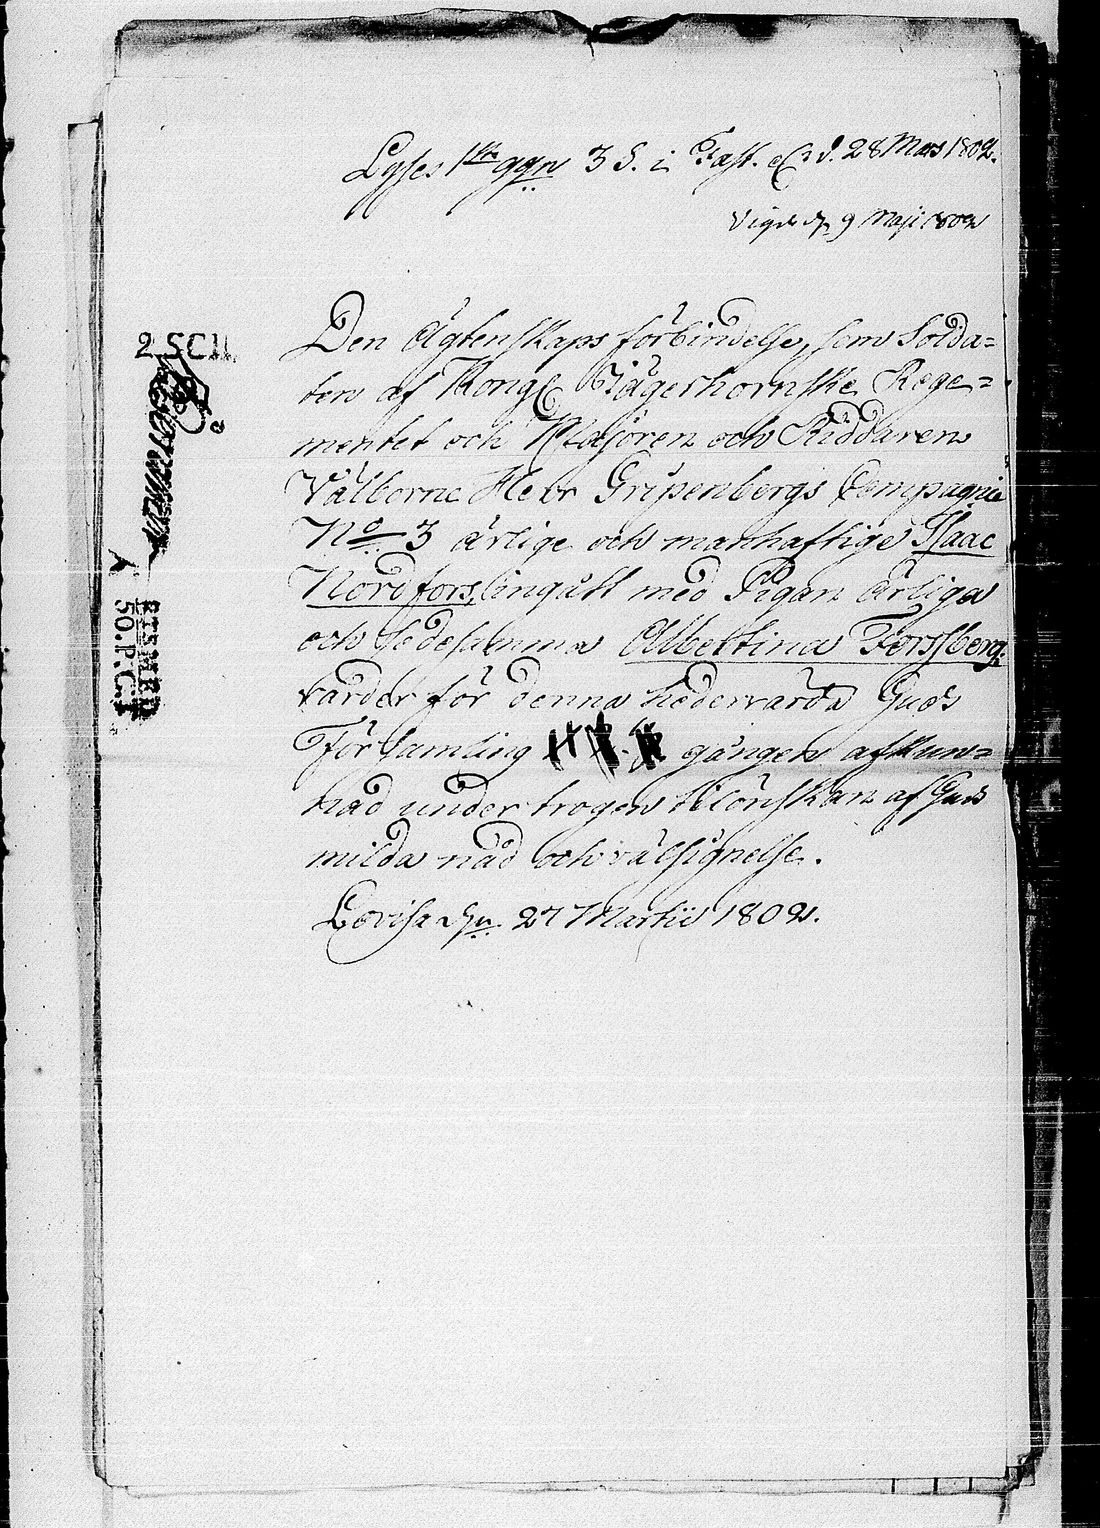 Lyses 1sta ggn 3 S. i Fast. d. 28 Mars 1802.
Vigde d. 9 Maji 1802
Den Ägtenskaps förbindelse, som Solda=
ten af Kongl Jägerhornske Rege=
mentet och Majoren och Riddaren
Välborne Herr Gripenbergs Compagnie
No 3 ärlige och manhaftige Isaac
Nordfors, ingått med Pigan ärliga
och sedesamma Albertina Forssberg
varder för denna hedervärda Guds
Församling gången afkun=
nad under trogen tillönskan af Guds
milda nåd och välsignelse.
Lovisa den 27 Martii 1802.
2 SCH.
RISMED
50.P.C:T